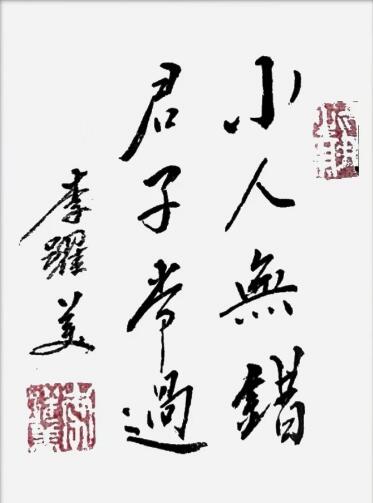 小人無錯
君子常過
李躍美